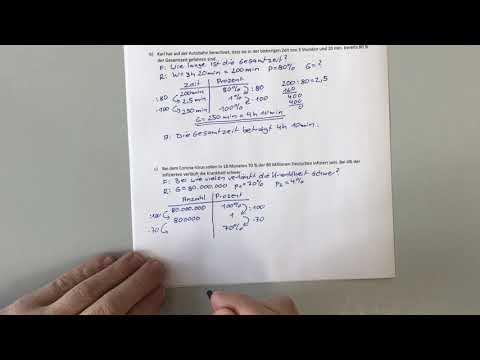 b) Karl hat auf der Autobahn berechnet, dass sie in der bisherigen Zeit von 3 Stunden und 20 min. bereits 80 %
der Gesamtzeit gefahren sind.
F: Wie lange ist die Gesamtzeit?
R: W=3h 20min = 200min P=80% G=?
Zeit Prozent
:80 200min 80% :80
2,5min 1%
·100 250min 100% ·100
G = 250min = 4h 10min
200:80=2,5
160
400
400
0
A: Die Gesamtzeit beträgt 4h 10min.
c) Bei dem Corona-Virus sollen in 18 Monaten 70 % der 80 Millionen Deutschen infiziert sein. Bei 4% der
Infizierten verläuft die Krankheit schwer.
F: Bei wie vielen verläuft die Krankheit schwer?
R: G=80.000.000 P₁=70% P₂=4%
Anzahl Prozent
:100 80.000.000 100% :100
800000 1
·70 70% ·70